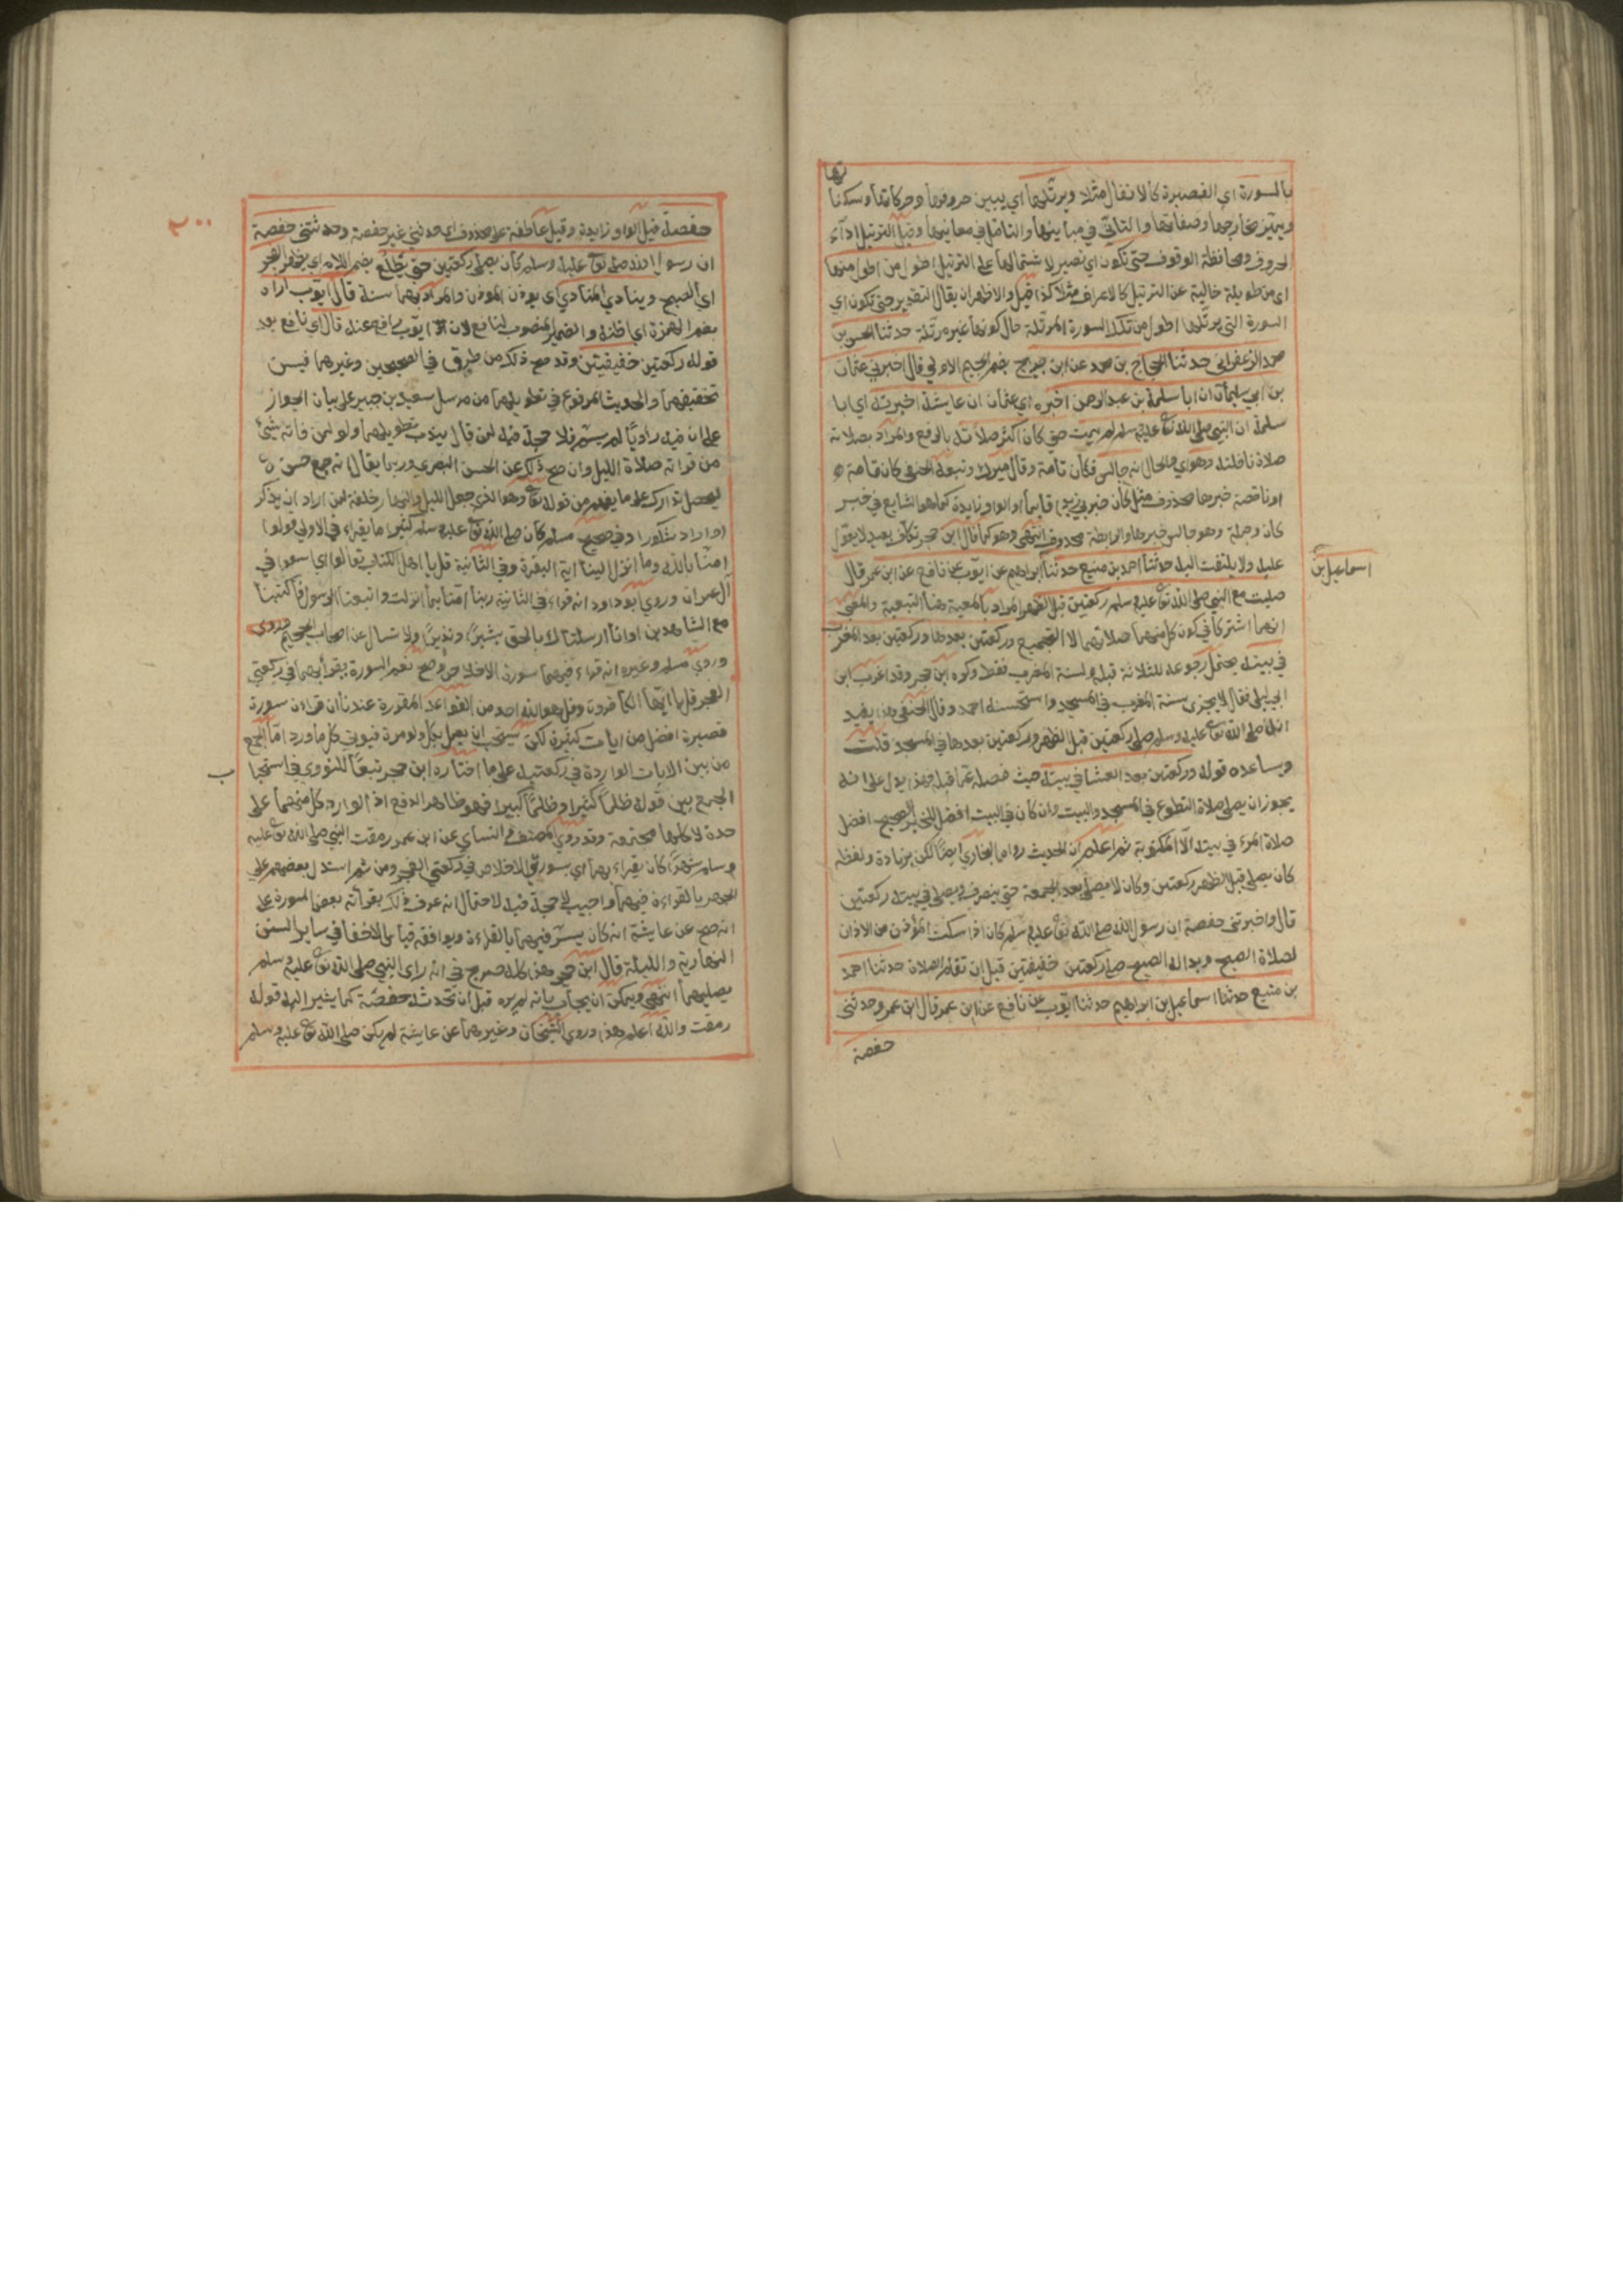 تها
بالسورة اي القصيرة كالانفال مثلا ويرتلها اي يبين حروفها وحركاتها وسكنا
ويميز مخارجها وصفاتها والتأني في مبانيها والتامل في معانيها وقيل الترتيل اداء
الحروف ومحافظة الوقوف حتى تكون اي تصير لاشتمالها على الترتيل اطول من اطول منها
اي من طويلة خالية عن الترتيل كالاعراف مثلا كذا قيل والاظهر ان يقال التقدير حتى تكون اي
السورة التي يرتلها اطول من تلك السورة المرتلة حال كونها غير مرتلة حدثنا الحسن بن
محمد الزعفراني حدثنا الحجاج بن محمد عن ابن جريج بضم الجيم الاولي قال اخبرني عثمان
بن ابي سليمان ان ابا سلمة بن عبد الرحمن اخبره اي عثمان ان عايشة اخبرته اي ابا
سلمة ان النبي صلى الله تع عليه وسلم لم يمت حتى كان اكثر صلاته بالرفع والمراد بصلاته
صلاة نافلته وهو اي والحال انه جالس فكان تامة وقال ميرك وتبعه الحنفي كان تامة
او ناقصة خبرها محذوف مثل كان ضربي زيدا قايما او الواو زايدة كما هو الشايع في خبر
كان وجملة وهو جالس خبرها والرابطة محذوف انتهى وهو كما قال ابن حجر تكلف بعيد لا يعول
عليه ولا يلتفت اليه حدثنا احمد بن منيع حدثنا ابراهيم عن ايوب عن نافع عن ابن عمر قال
اسماعيل بن
صليت مع النبي صلى الله تع عليه وسلم ركعتين قبل الظهر المراد بالمعية هنا التبعية والمعنى
انهما اشتركا في كون كل منهما صلاتهما لا التجميع وركعتين بعدها وركعتين بعد المغرب
في بيته يحتمل رجوعه للثلاثة قبله ولسنة المغرب فقط وكره ابن حجر وقد اغرب ابن
ابي ليلى فقال لا يجزى سنة المغرب في المسجد واستحسنه احمد وقال الحنفي هذا يفيد
انه صلى الله تع عليه وسلم صلى ركعتين قبل الظهر وركعتين بعدها في المسجد قلت
ويساعده قوله وركعتين بعد العشا في بيته حيث فصله عما قبله فهذا يدل على انه
يجوز ان يصلى صلاة التطوع في المسجد والبيت وان كان في البيت افضل للخبر الصحيح افضل
صلاة المرء في بيته الا المكتوبة ثم اعلم ان الحديث رواه البخاري ايضا لكن بزيادة ولفظه
كان يصلى قبل الظهر ركعتين وكان لا يصلى بعد الجمعة حتى ينصرف ويصلى في بيته ركعتين
قال واخبرتني حفصة ان رسول الله صلى الله تع عليه وسلم كان اذا سكت المؤذن من الاذان
لصلاة الصبح وبدا له الصبح صلى ركعتين خفيفتين قبل ان تقام الصلاة حدثنا احمد
بن منيع حدثنا اسماعيل بن ابراهيم حدثنا ايوب عن نافع عن ابن عمر قال ابن عمر وحدثتني
حفصة
٢٠٠
حفصة قيل الواو زايدة وقيل عاطفة على محذوف اي حدثني غير حفصة وحدثتني حفصة
ان رسول الله صلى تع عليه وسلم كان يصلى ركعتين حتى يطلع بضم اللام اي يظهر الفجر
اي الصبح وينادي المنادي اي يؤذن المؤذن والمراد بهما سنة قال ايوب اراه
بضم الهمزة اي اظنه والضمير المنصوب لنافع لان ايوب راو عنه قال اي نافع بعد
قوله ركعتين خفيفتين وقد صح ذلك من طرق في الصحيحين وغيرهما فيسن
تخفيفهما والحديث المرفوع في تطويلهما من مرسل سعيد بن جبير على بيان الجواز
على ان فيه راويا لم يسم فلا حجة فيه لمن قال يندب تطويلهما ولو لمن فاته شيئ
من قراته صلاة الليل وان صح ذلك عن الحسن البصري وربما يقال انه جمع حسن
ليحصل تدارك على ما يفهم من قوله تع وهو الذي جعل الليل والنهار خلفة لمن اراد ان يذكر
او اراد شكورا وفي صحيح مسلم كان صلى الله تع عليه وسلم كثيرا ما يقراء في الاولي قولوا
امنا بالله وما انزل الينا اية البقرة وفي الثانية قل يا اهل الكتاب تعالوا اي سوا في
آل عمران وروي ابو داود انه قراء في الثانية ربنا امنا بما انزلت واتبعنا الرسول فاكتبنا
مع الشاهدين او انا ارسلناك بالحق بشيرا ونذيرا ولا تسال عن اصحاب الجحيم وروي
وروي مسلم وغيره انه قراء فيهما سورة الاخلاص وصح نعم السورة يقرابهما في ركعتي
الفجر قل يا ايها الكافرون وقل هو الله احد ومن القواعد المقررة عندنا ان قراءة سورة
قصيرة افضل من ايات كثيرة لكن يستحب ان يعمل بكل ولو مرة فيوتي كل ما ورد اما الجمع
من بين الايات الواردة في ركعتيه على ما اختاره ابن حجر تبعا للنووي في استحبا
ب
الجمع بين قوله ظلما كثيرا وظلما كبيرا فهو ظاهر الدفع اذ الوارد كل منهما على
حدة لا كلها مجتمعة وقد روي المصنف والنساي عن ابن عمر رمقت النبي صلى الله تع عليه
وسلم شهرا كان يقراء بهما اي بسورتي الاخلاص في ركعتي الفجر ومن ثم استدل بعضهم على
الجهر بالقراءة فيهما واجيب لا حجة فيه لاحتمال انه عرف ذلك بقراته بعض السورة على
انه صح عن عايشة انه كان يسر فيهما بالقراءة ويوافقه قياس الاخفا في ساير السنن
النهارية والليلة قال ابن حجر وهذا كله صريح في انه راى النبي صلى الله تع عليه وسلم
يصليهما انتهى ويمكن ان يجاب بانه لم يره قبل ان تحدثه حفصة كما يشير اليه قوله
رمقت والله اعلم هذا وروي الشيخان وغيرهما عن عايشة لم يكن صلى الله تع عليه وسلم